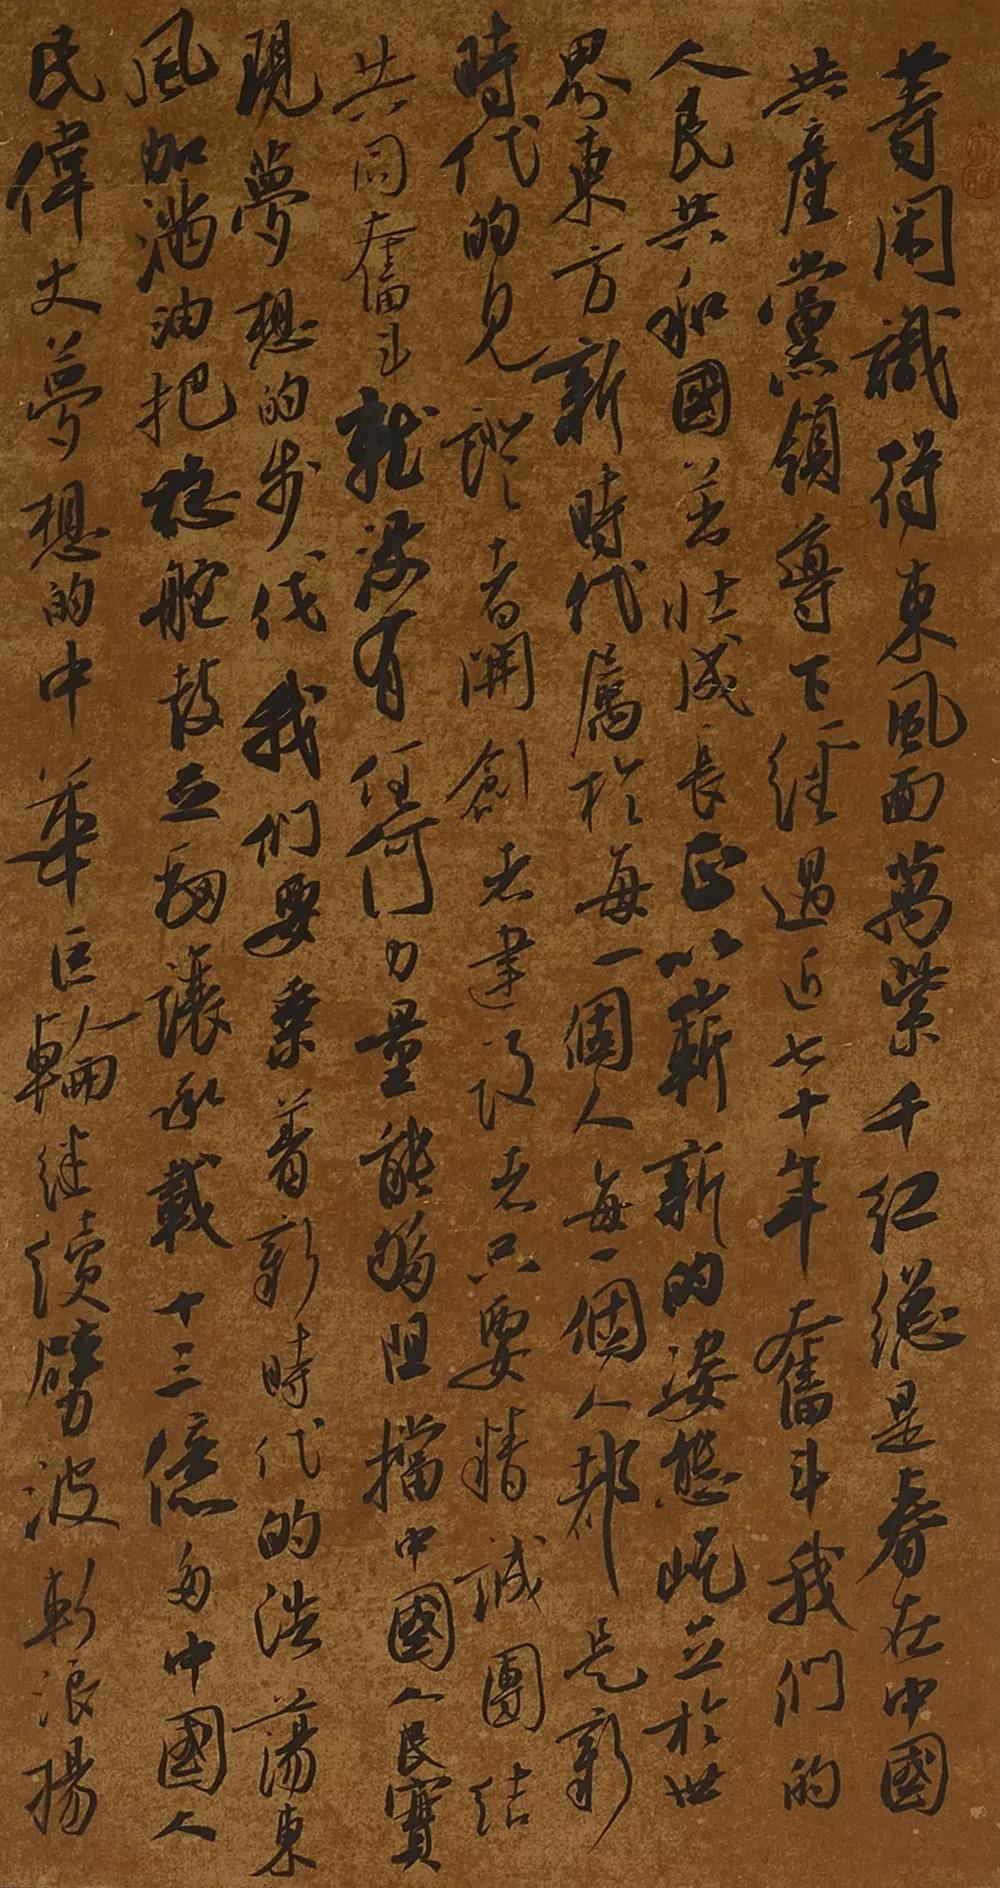 等閑識得東風面萬紫千红總是春在中國
共產黨領導下經過近七十年奮斗我們的
人民共和國茁壯成長正以嶄新的姿態屹立於世
界東方新時代屬於每一個人每一個人都是新
時代的見證者開創者建設者只要精誠團结
共同奮斗就没有任何力量能夠阻擋中國人民實
現夢想的步伐我們要乘着新時代的浩蕩東
風加满油把稳舵鼓足劲讓承載十三億多中國人
民偉大夢想的中華巨輪继續劈波斬浪揚